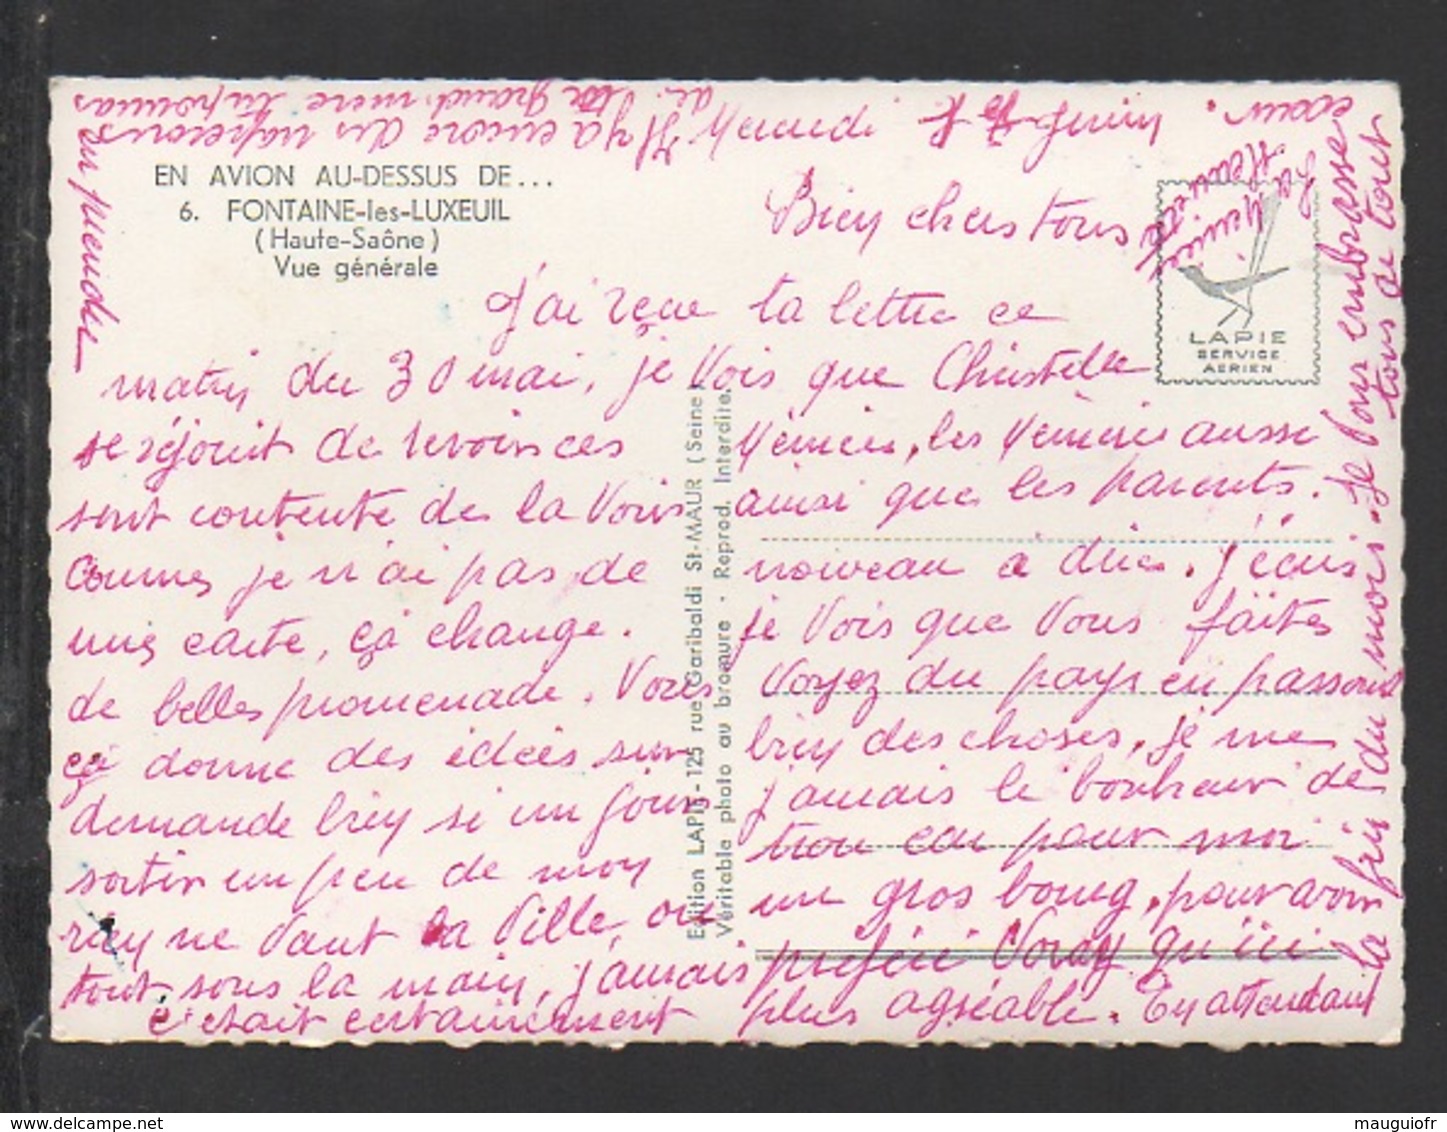 EN AVION AU-DESSUS DE...
6. FONTAINE-les-LUXEUIL
(Haute-Saône)
Vue générale
LAPIE
SERVICE
AERIEN
Edition LAPIE - 125 rue Garibaldi St-MAUR (Seine)
Véritable photo au bromure - Reprod. Interdite.
Mercredi 7 Juin
Bien chers tous
J'ai reçue ta lettre ce
matin du 30 mai, je Vois que Christelle
se réjouit de revoir ces Mémées, les Mémères ausse
sont contente de la Voir ainsi que les parents.
Comme je n'ai pas de nouveau a dire. J'écris
une carte, ça change. je Vois que Vous faites
de belles promenade. Vous Voyez du pays en passant
ça donne des idées sur bien des choses, je me
demande bien si un jour j'aurais le bonheur de
sortir un peu de mon trou car pour moi
rien ne Vaut la Ville, ou un gros bourg, pour avoir
tout sous la main, j'aurais préféré Voray qu'ici
c'etait certainement plus agréable. En attendant
la fin du mois. Je Vous embrasse
tous de tout
cœur.
La Mémère
Il y a encore des napperons
de la grand-mère
en prendre
mauguiofr